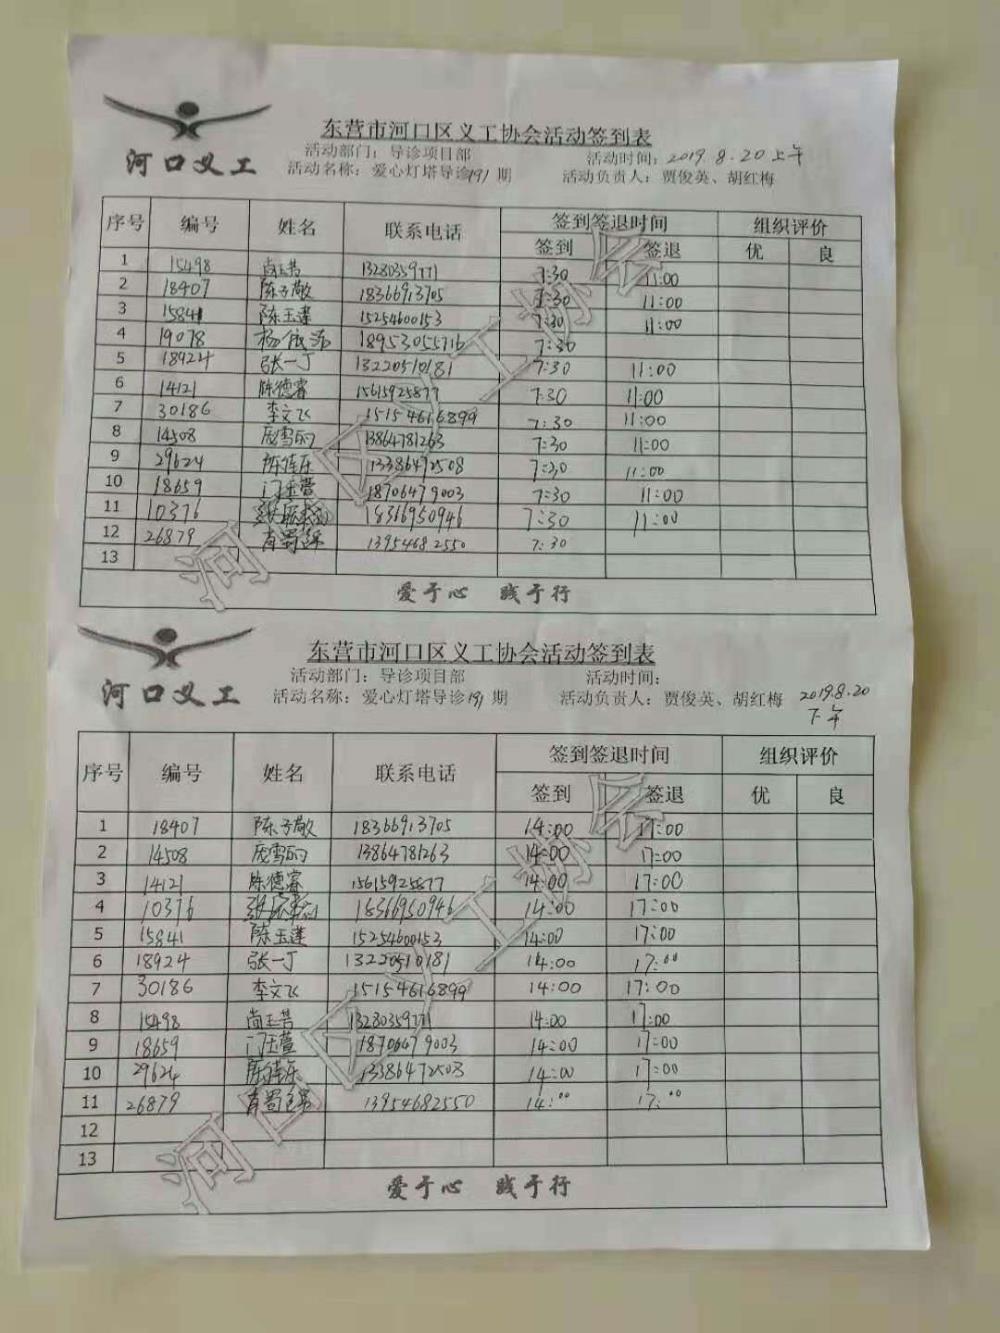 河口义工
东营市河口区义工协会活动签到表
活动部门：导诊项目部 活动时间：2019.8.20上午
活动名称：爱心灯塔导诊191期 活动负责人：贾俊英、胡红梅
序号 编号 姓名 联系电话 签到签退时间 组织评价
签到 签退 优 良
1 15498 尚玉芸 13280359771 7:30 11:00
2 18407 陈子敬 18366913705 7:30 11:00
3 15841 陈玉莲 15254600153 7:30 11:00
4 19078 杨 18953055716 7:30
5 18924 张一丁 13220510181 7:30 11:00
6 14121 陈德睿 15615925877 7:30 11:00
7 30186 李文飞 15154616899 7:30 11:00
8 14508 庞雪 13864781263 7:30 11:00
9 29624 13386472508 7:30 11:00
10 18659 门玉萱 18706479003 7:30 11:00
11 10376 18366950946 7:30 11:00
12 26879 13954682550 7:30
13
爱于心 践于行
河口区义工协会
河口义工
东营市河口区义工协会活动签到表
活动部门：导诊项目部 活动时间：
活动名称：爱心灯塔导诊191期 活动负责人：贾俊英、胡红梅 2019.8.20
下午
序号 编号 姓名 联系电话 签到签退时间 组织评价
签到 签退 优 良
1 18407 陈子敬 18366913705 14:00 17:00
2 14508 庞雪 13864781263 14:00 17:00
3 14121 陈德睿 15615925877 14:00 17:00
4 10376 18366950946 14:00 17:00
5 15841 陈玉莲 15254600153 14:00 17:00
6 18924 张一丁 13220510181 14:00 17:00
7 30186 李文飞 15154616899 14:00 17:00
8 15498 尚玉芸 13280359771 14:00 17:00
9 18659 门玉萱 18706479003 14:00 17:00
10 29624 13386472508 14:00 17:00
11 26879 13954682550 14:00 17:00
12
13
爱于心 践于行
河口区义工协会